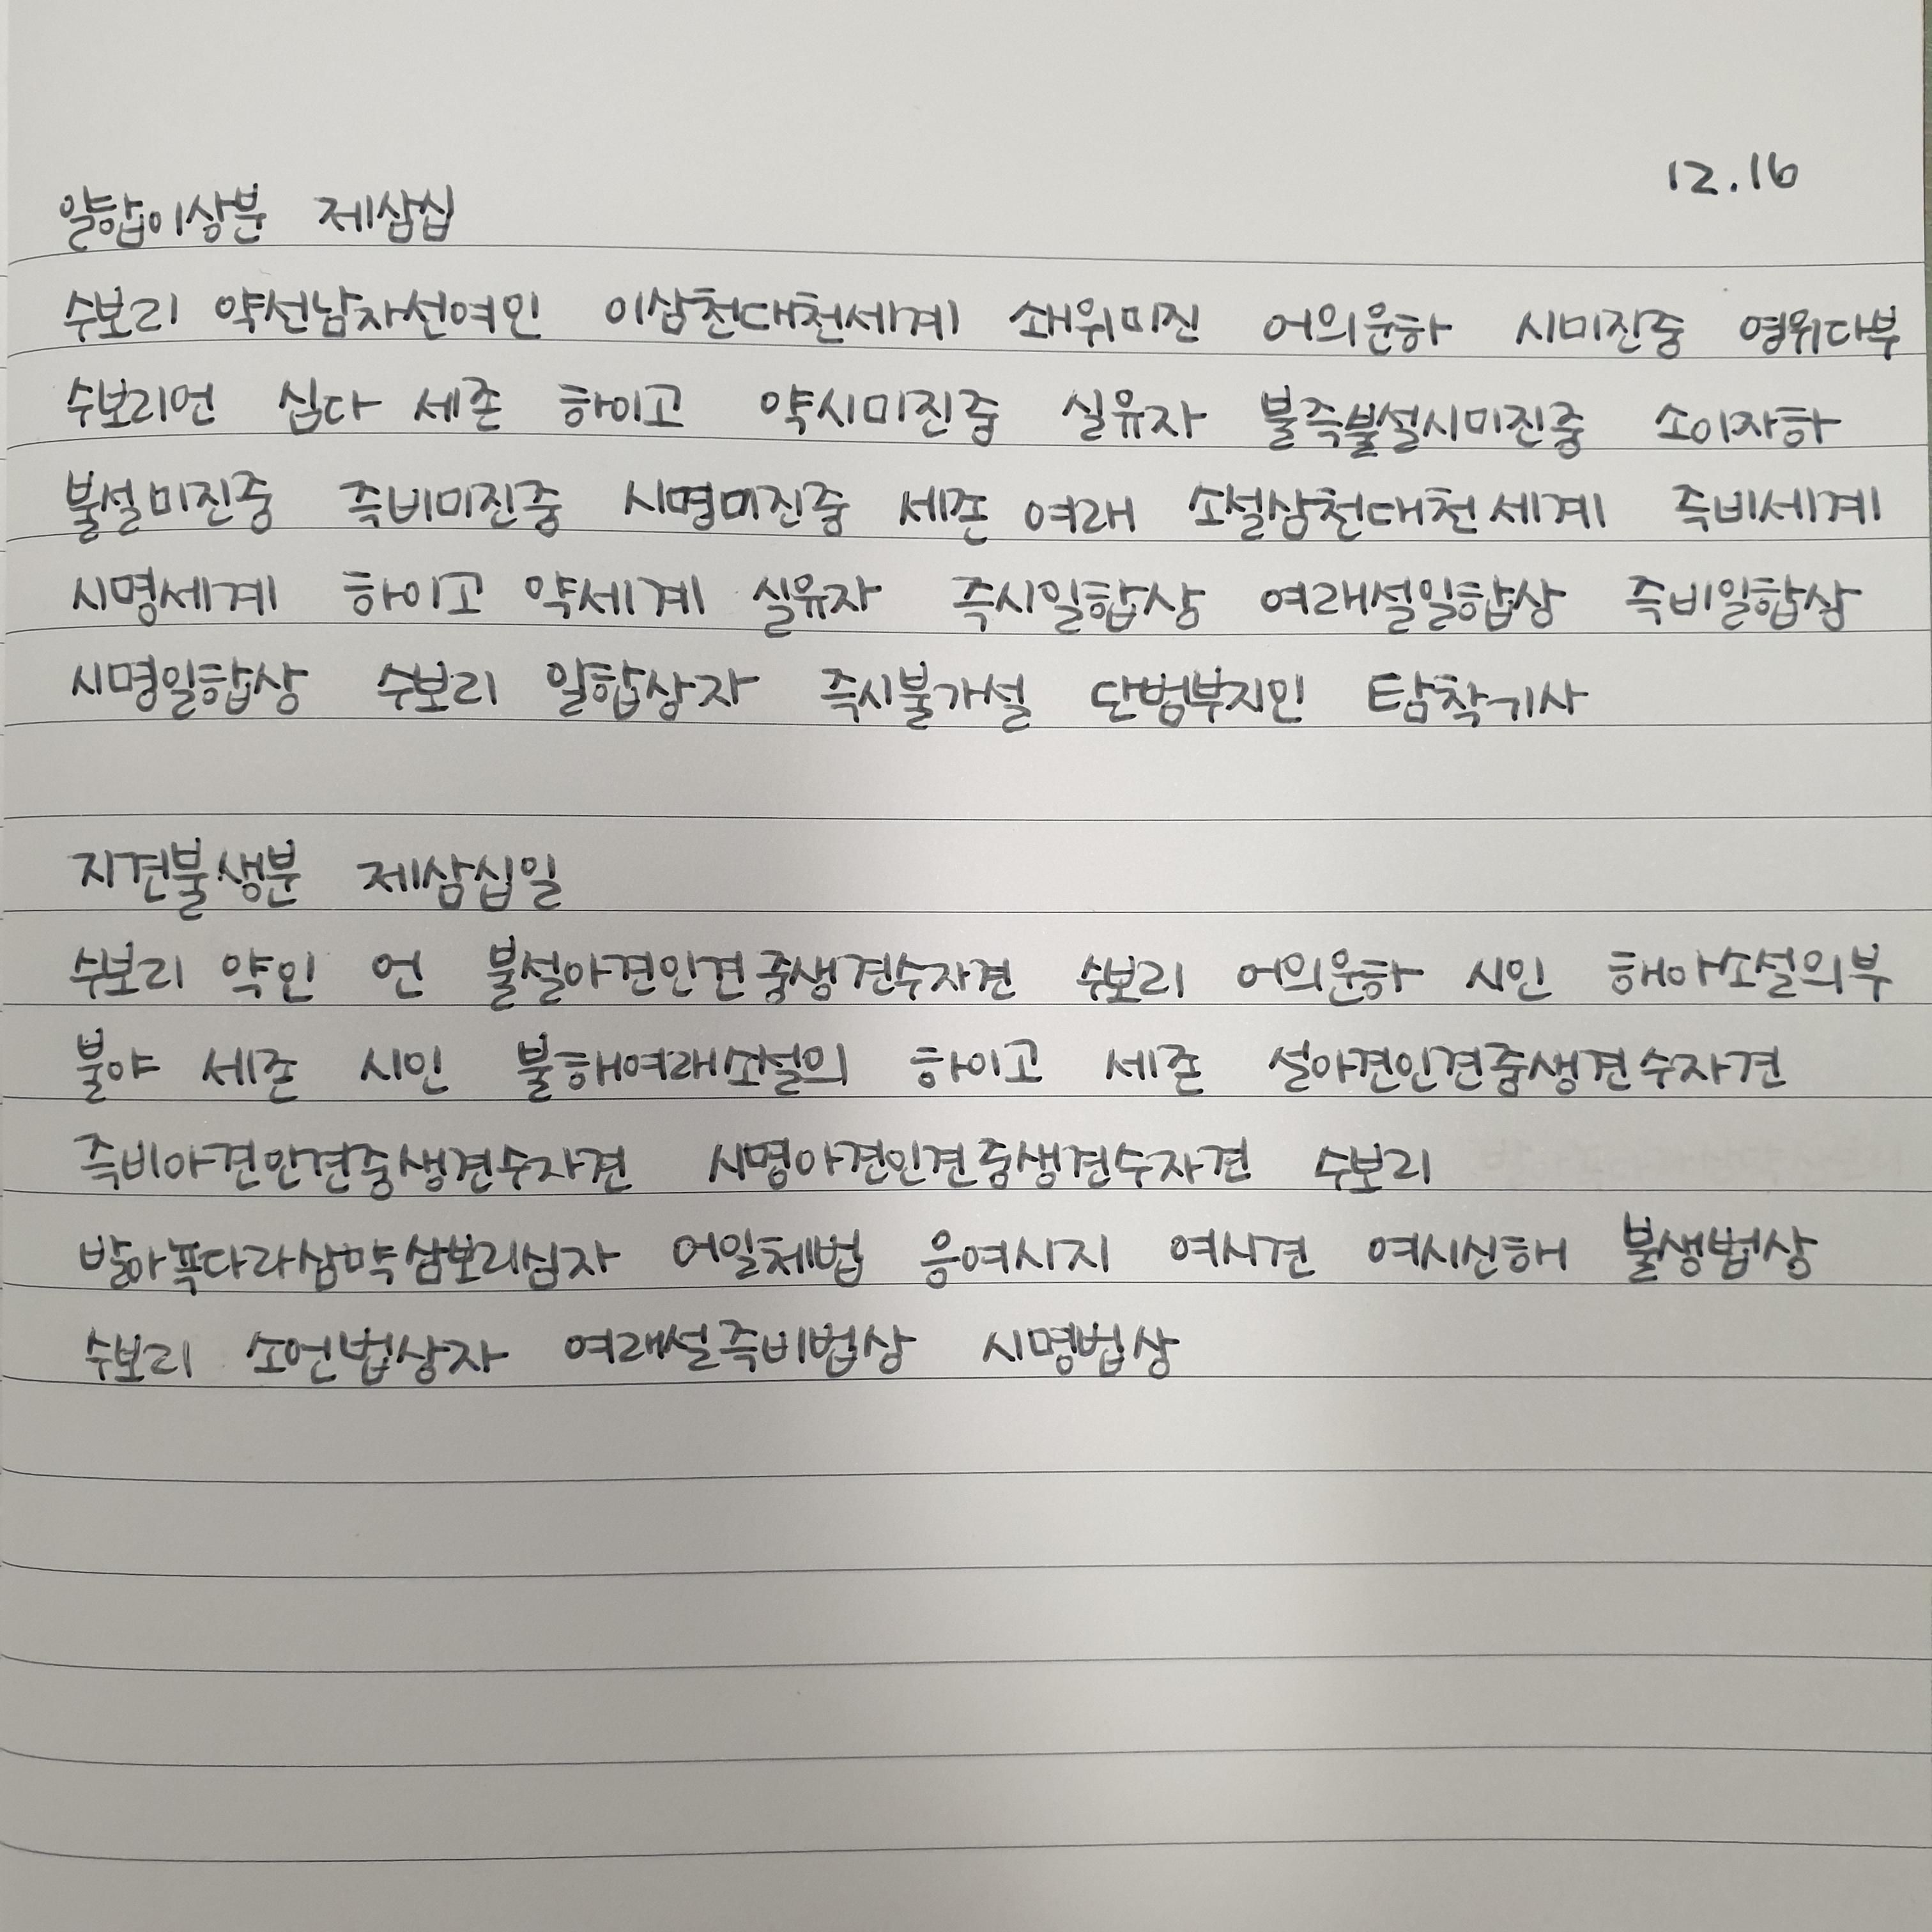 12.16
일합이상분 제삼십
수보리 약선남자선여인 이삼천대천세계 쇄위미진 어의운하 시미진중 영위다부
수보리언 십다 세존 하이고 약시미진중 실유자 불즉불설시미진중 소이자하
불설미진중 즉비미진중 시명미진중 세존 여래 소설삼천대천세계 즉비세계
시명세계 하이고 약세계 실유자 즉시일합상 여래설일합상 즉비일합상
시명일합상 수보리 일합상자 즉시불가설 단범부지인 탐착기사
지견불생분 제삼십일
수보리 약인 언 불설아견인견중생견수자견 수보리 어의운하 시인 해아소설의부
불야 세존 시인 불해여래소설의 하이고 세존 설아견인견중생견수자견
즉비아견인견중생견수자견 시명아견인견중생견수자견 수보리
발아뇩다라삼막삼보리심자 어일체법 응여시지 여시견 여시신해 불생법상
수보리 소언법상자 여래설즉비법상 시명법상